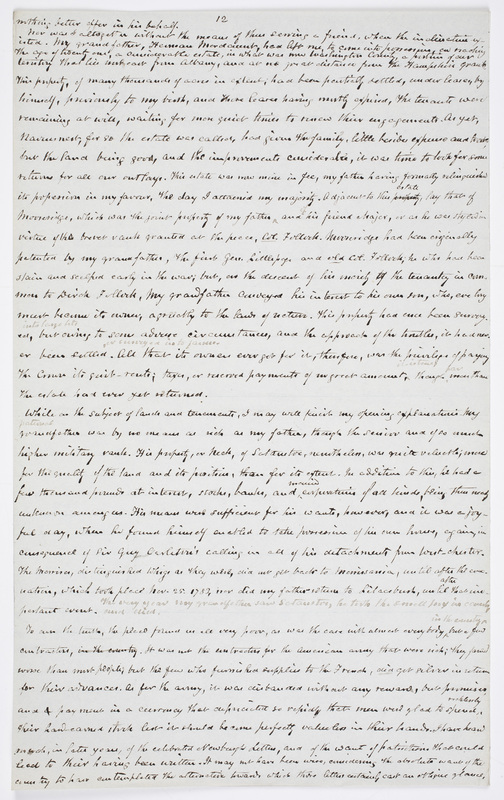 12
nothing better offer in his behalf.
Nor was I altogether without the means of thus serving a friend, when the inclination ex-
isted. My grandfather, Herman Mordaunt, had left me, to come into possession on reaching
the age of twenty one, a considerable estate, in what was now Washington County, a portion of our
territory that lies northeast from Albany, and at no great distance from the Hampshire Grants.
This property, of many thousands of acres in extent, had been partially settled, under leases, by
himself, previously to my birth, and those leases having mostly expired, the tenants were
remaining at will, waiting for more quiet times to renew their engagements. As yet,
Ravensnest, for so the estate was called, had given the family, little besides expense and trouble,
but the land being good, and the improvements considerable, it was time to look for some
returns for all our outlays. This estate was now mine in fee, my father having formally relinquished
its possession in my favour, the day I attained my majority. Adjacent to this estate lay that of
Mooseridge, which was the joint property of my father, and his friend Major, or as he was styled in
virtue of the brevet rank granted at the peace, Col. Follock. Mooseridge had been originally
patented by my grandfather, the first Gen. Littlepage, and old Col. Follock, he who had been
slain and scalped early in the war; but, on the descent of his moiety of the tenantry in com-
mon to Dirck Follock, My grandfather conveyed his interest to his own son, who, ere long
must become its owner, agreeably to the laws of nature. This property had once been survey-
ed, into large lots but owing to some adverse circumstances, and the approach of the troubles, it had nev-
er been settled or surveyed into farms. All that its owners ever got for it, therefore, was the privilege of paying
the Crown its quit-rents; taxes, or reserved payments of no great amount, though more than
the estate had ever yet returned.
While on the subject of lands and tenements, I may well finish my opening explanations. My
paternal grandfather was by no means as rich as my father, though the senior and of so much
higher military rank. His property, or Neck, of Satanstoe, nevertheless, was quite valuable, more
for the quality of the land and its position, than for its extent. In addition to this, he had a
few thousand pounds at interest, stocks, banks, and monied corporations of all kinds being then nearly
unknown among us. His means were sufficient for his wants, however, and it was a joy-
ful day, when he found himself enabled to take possession of his own house, again, in
consequence of Sir Guy Carleton's calling in all of his detachments from West chester.
The Morrises, distinguished Whigs as they were, did not get back to Morrisania, until after the evac-
uation, which took place Nov. 25. 1783, nor did my father return to Lilacsbush, until after that im-
portant event. The very year my grandfather saw Satanstoe, he took the small pox in camp
and died.
To own the truth, the peace found us all very poor, as was the case with almost every body in the country, but a few
contractors. It was not the contractors for the American army that were rich; they fared
worse than most people; but the few who furnished supplies to the French, did get silver in return
for their advances. As for the army, it was disbanded without any reward, but promises,
and payment in a currency that depreciated so rapidly that men were glad to spend, recklessly
their hard-earned stock lest it should become perfectly valueless in their hands. I have heard
much, in later years, of the celebrated Newburgh letters, and of the want of patriotism that could
lead to their having been written. It may not have been wise, considering the absolute want of the
country to have contemplated the alternative towards which those letters certainly cast an oblique glance,